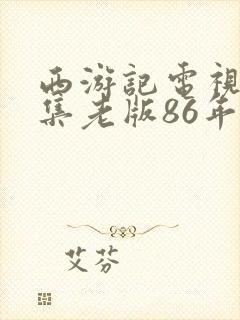 西游記電視
集老版86年
艾芬